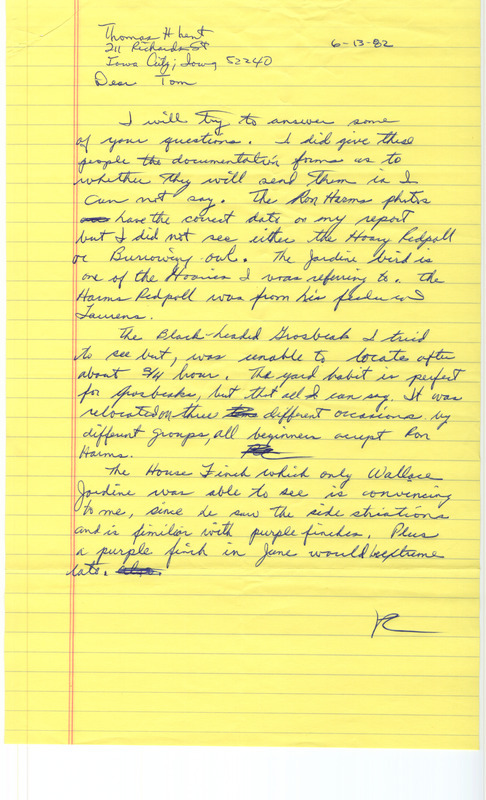 Thomas H Kent
211 Richards St 6-13-82
Iowa City, Iowa 52240
Dear Tom
I will try to answer some
of your questions. I did give these
people the documentation forms as to
whether they will send them in I
can not say. The Ron Harms photos
have the correct date or my report
but I did not see either the Hoary Redpoll
or Burrowing owl. The Jardine bird is
one of the Hoaries I was referring to. The
Harms Redpoll was from his feeder in
Laurens.
The Black-headed Grosbeak I tried
to see but, was unable to locate after
about 3/4 hour. The yard habit is perfect
for grosbeaks, but that all I can say. It was
relocated on three different occasions by
different groups, all beginners accept Ron
Harms.
The House Finch which only Wallace
Jardine was able to see is convincing
to me, since he saw the side striations
and is fimiliar with purple finches. Plus
a purple finch in June would be extreme
late.